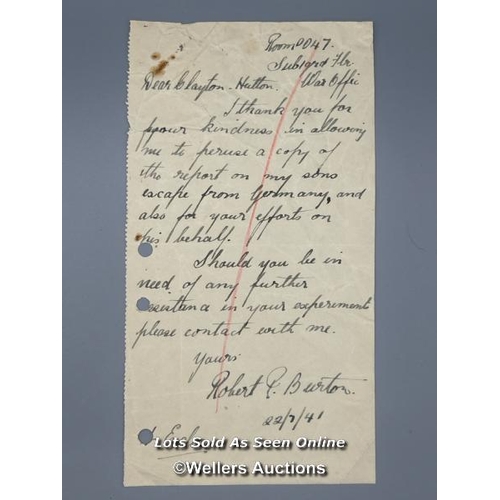 Room 0047.
Sub Grd Flr.
War Offi
Dear Clayton-Hutton.
I thank you for
your kindness in allowing
me to peruse a copy of
the report on my sons
escape from Germany, and
also for your efforts on
his behalf.
Should you be in
need of any further
assistance in your experiments
please contact with me.
Yours
Robert E. Burton.
22/7/41
Lots Sold As Seen Online
©Wellers Auctions